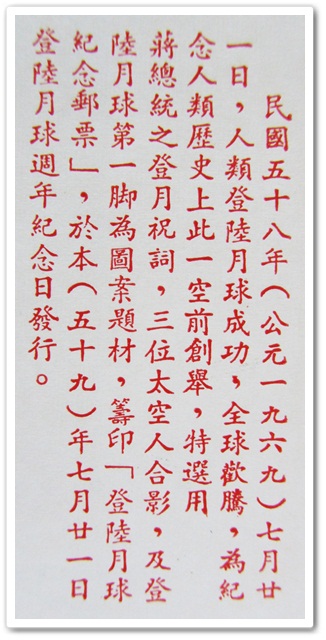 民國五十八年（公元一九六九）七月廿
一日，人類登陸月球成功，全球歡騰，為紀
念人類歷史上此一空前創舉，特選用
蔣總統之登月祝詞，三位太空人合影，及登
陸月球第一脚為圖案題材，籌印「登陸月球
紀念郵票」，於本（五十九）年七月廿一日
登陸月球週年紀念日發行。